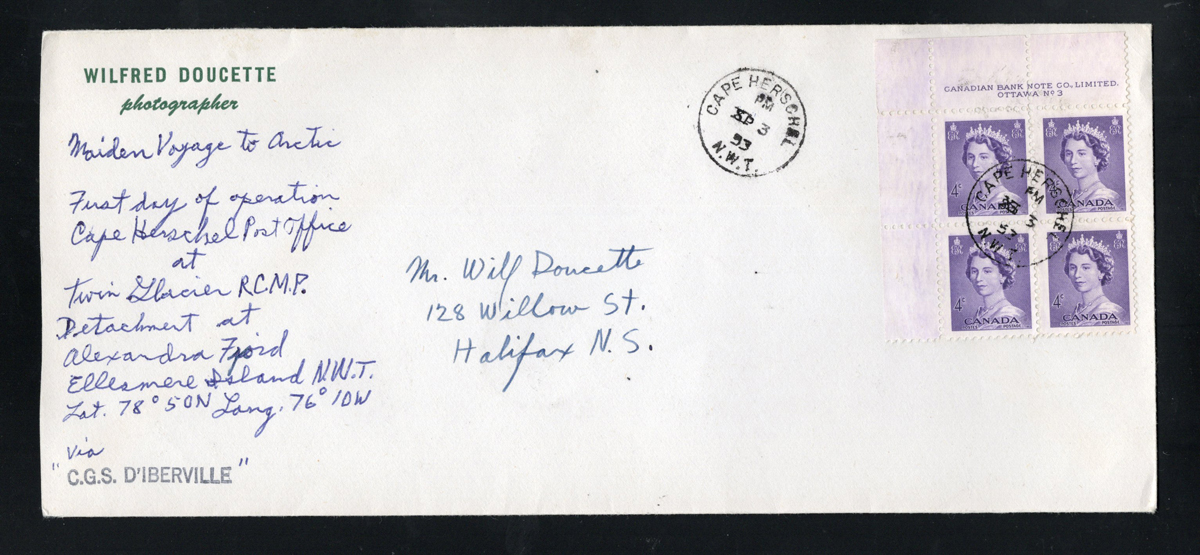 WILFRED DOUCETTE
photographer
Maiden Voyage to Arctic
First day of operation
Cape Herschel Post Office
at
Twin Glacier R.C.M.P.
Detachment at
Alexandra Fjord
Ellesmere Island N.W.T.
Lat. 78° 50N Long. 76° 10W
via
"C.G.S. D'IBERVILLE"
Mr. Wilf Doucette
128 Willow St.
Halifax N.S.
CAPE HERSCHEL
PM
SP 3
53
N.W.T.
CANADIAN BANK NOTE CO., LIMITED.
OTTAWA Nº 3
4¢
CANADA
POSTES POSTAGE
CANADA
POSTES POSTAGE
4¢
CANADA
POSTES POSTAGE
4¢
CANADA
POSTES POSTAGE
CAPE HERSCHEL
PM
3
53
N.W.T.